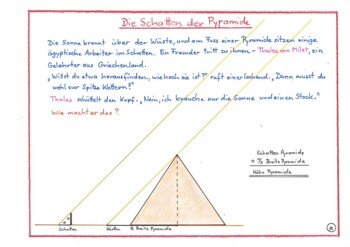 Die Schatten der Pyramide
Die Sonne brennt über der Wüste, und am Fuss einer Pyramide sitzen einige
ägyptische Arbeiter im Schatten. Ein Fremder tritt zu ihnen - Thales von Milet, ein
Gelehrter aus Griechenland.
„Willst du etwa herausfinden, wie hoch sie ist?" ruft einer lachend. „Dann musst du
wohl zur Spitze klettern?"
Thales schüttelt den Kopf. „Nein, ich brauche nur die Sonne und einen Stock."
Wie macht er das?
Schatten Pyramide
+ ½ Breite Pyramide
Höhe Pyramide
Schatten
Schatten
½ Breite Pyramide